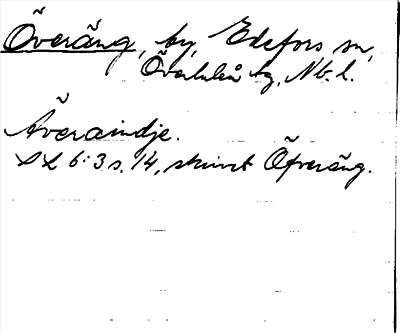 Överäng, by, Edefors sn,
Överluleå tg, Nb. l.
Äveraindje.
SL 6:3 s. 14, skrivet Öfveräng.